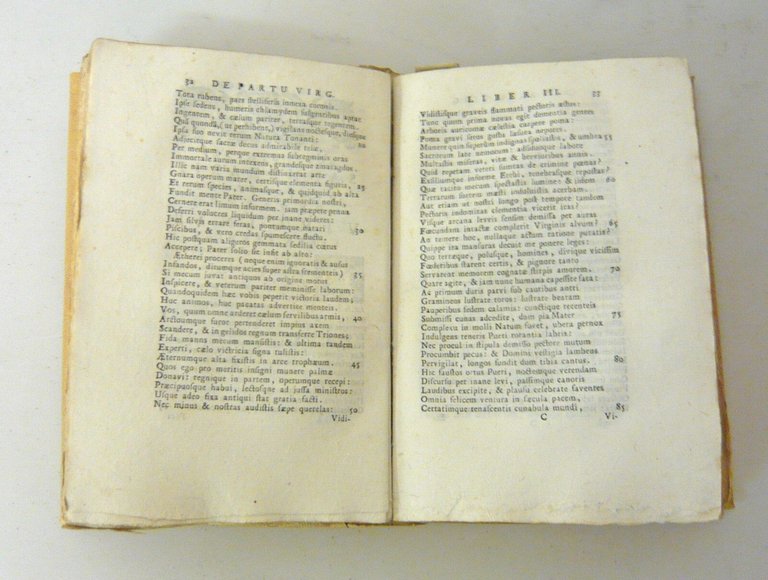 32 DE PARTU VIRG.
Tota rubens, pars stelliferis innexa coronis.
Ipse sedens, humeris chlamydem fulgentibus aptat 20
Ingentem, & cælum pariter, terrasque tegentem,
Quà quondam, (ut perhibent,) vigilans noctesque, diesque
Ipsa suo nevit rerum Natura Tonanti:
Adjecitque sacræ decus admirabile telæ.
Per medium, perque extremas subtegminis oras
Immortale aurum intexens, grandesque smaragdos. 25
Illic nam varia mundum distinxerat arte
Gnara operum mater, certisque elementa figuris,
Et rerum species, animasque, & quidquid ab alta
Fundit mente Pater. Generis primordia nostri,
Cernere erat limum informem. jam præpete penna 30
Deferri volucres liquidum per inane videres:
Jam silvis errare feras, pontumque natari
Piscibus, & vero credas spumescere fluctu.
Hic postquam aligeros gemmata sedilia cœtus
Accepere; Pater solio sic infit ab alto:
Ætherei proceres (neque enim ignoratis & ausus 35
Infandos, ditumque acies super astra frementis)
Si mecum juvat antiquum ab origine motus
Inspicere, & veterum pariter meminisse laborum:
Quandoquidem hæc vobis peperit victoria laudem;
Huc animos, huc pacatas advertite menteis.
Vos, quum omne arderet cælum servilibus armis, 40
Arctoumque furor pertenderet impius axem
Scandere, & in gelidos regnum transferre Triones;
Fida manus mecum mansistis: & ultima tandem
Experti, cælo victricia signa tulistis:
Æternumque alta fixistis in arce trophæum. 45
Quos ego pro meritis insigni munere palmæ
Donavi: regnique in partem, operumque recepi:
Præcipuosque habui, lectosque ad jussa ministros:
Usque adeo fixa antiqui stat gratia facti.
Nec minus & nostras audistis sæpe querelas: 50
Vidi-
LIBER III. 33
Vidistisque graveis flammati pectoris æstus:
Tunc quum prima novas egit dementia gentes
Arboris auricomæ cælestia carpere poma:
Poma gravi seros gustu læsura nepotes.
Munere quin superûm indignas spoliastis, & umbra 55
Sacrorum late nemorum: adsuntque labore
Multastis miseras, vitæ & brevioribus annis.
Quid repetam veteri sumtas de crimine pœnas?
Exsiliumque informe Erebi, tenebrasque repostas?
Quæ tacito mecum spectastis lumine: & idem 60
Terrarum sortem mœsti indoluistis acerbam.
Aut etiam ut nostri longo post tempore tandem
Pectoris indomitas clementia vicerit iras?
Visque arcana levis sensim demissa per auras
Fœcundam intactæ complerit Virginis alvum? 65
An temere hoc, nullaque actum ratione putatis?
Quippe ita mansuras decuit me ponere leges:
Quo terræque, polusque, homines, divique vicissim
Fœderibus starent certis, & pignore tanto
Servarent memorem cognatæ stirpis amorem. 70
Quare agite, & jam nunc humana capessite fata:
Ac primum duris parvi sub cautibus antri
Gramineos lustrate toros: lustrate beatam
Pauperibus sedem calamis: cunctique recenteis
Submissi cunas adcedite, dum pia Mater 75
Complexu in molli Natum fovet, ubera pernox
Indulgens teneris Pueri rotantia labris:
Nec procul in stipula demisso pectore mutum
Procumbit pecus: & Domini vestigia lambens
Pervigilat, longos fundit dum tibia cantus. 80
Hic faustos ortus Pueri, noctemque verendam
Discursu per inane levi, passimque canoris
Laudibus excipite, & plausu celebrate faventes
Omnia felicem ventura in sæcula pacem,
Certatimque renascenti cunabula mundi, 85
C Vi-